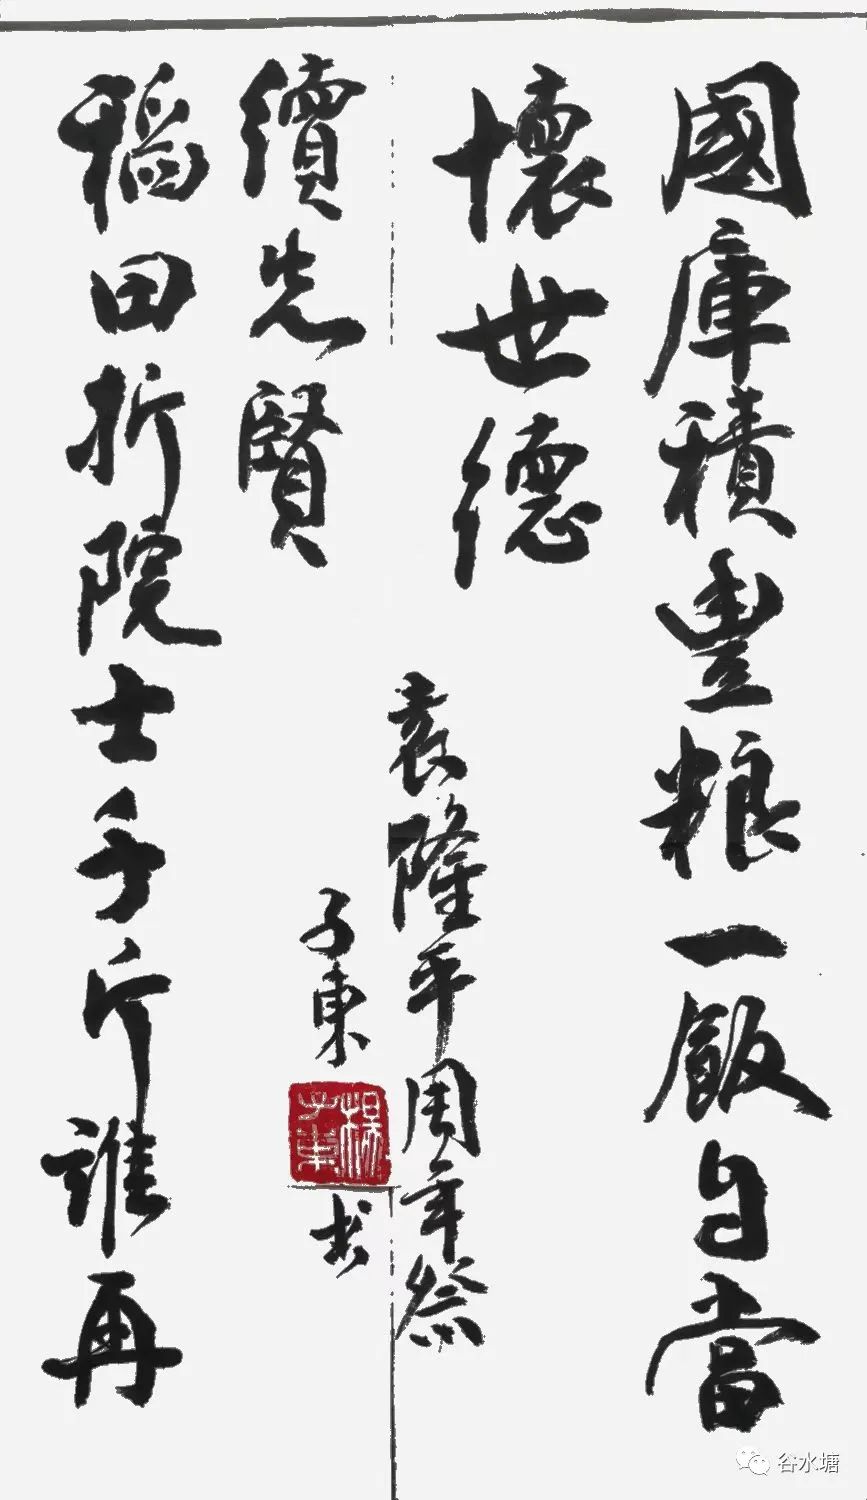 國庫積豐粮一飯自當
懷世德
稻田折院士千斤誰再
續先賢
袁隆平周年祭
子東
楊子東
书
谷水塘